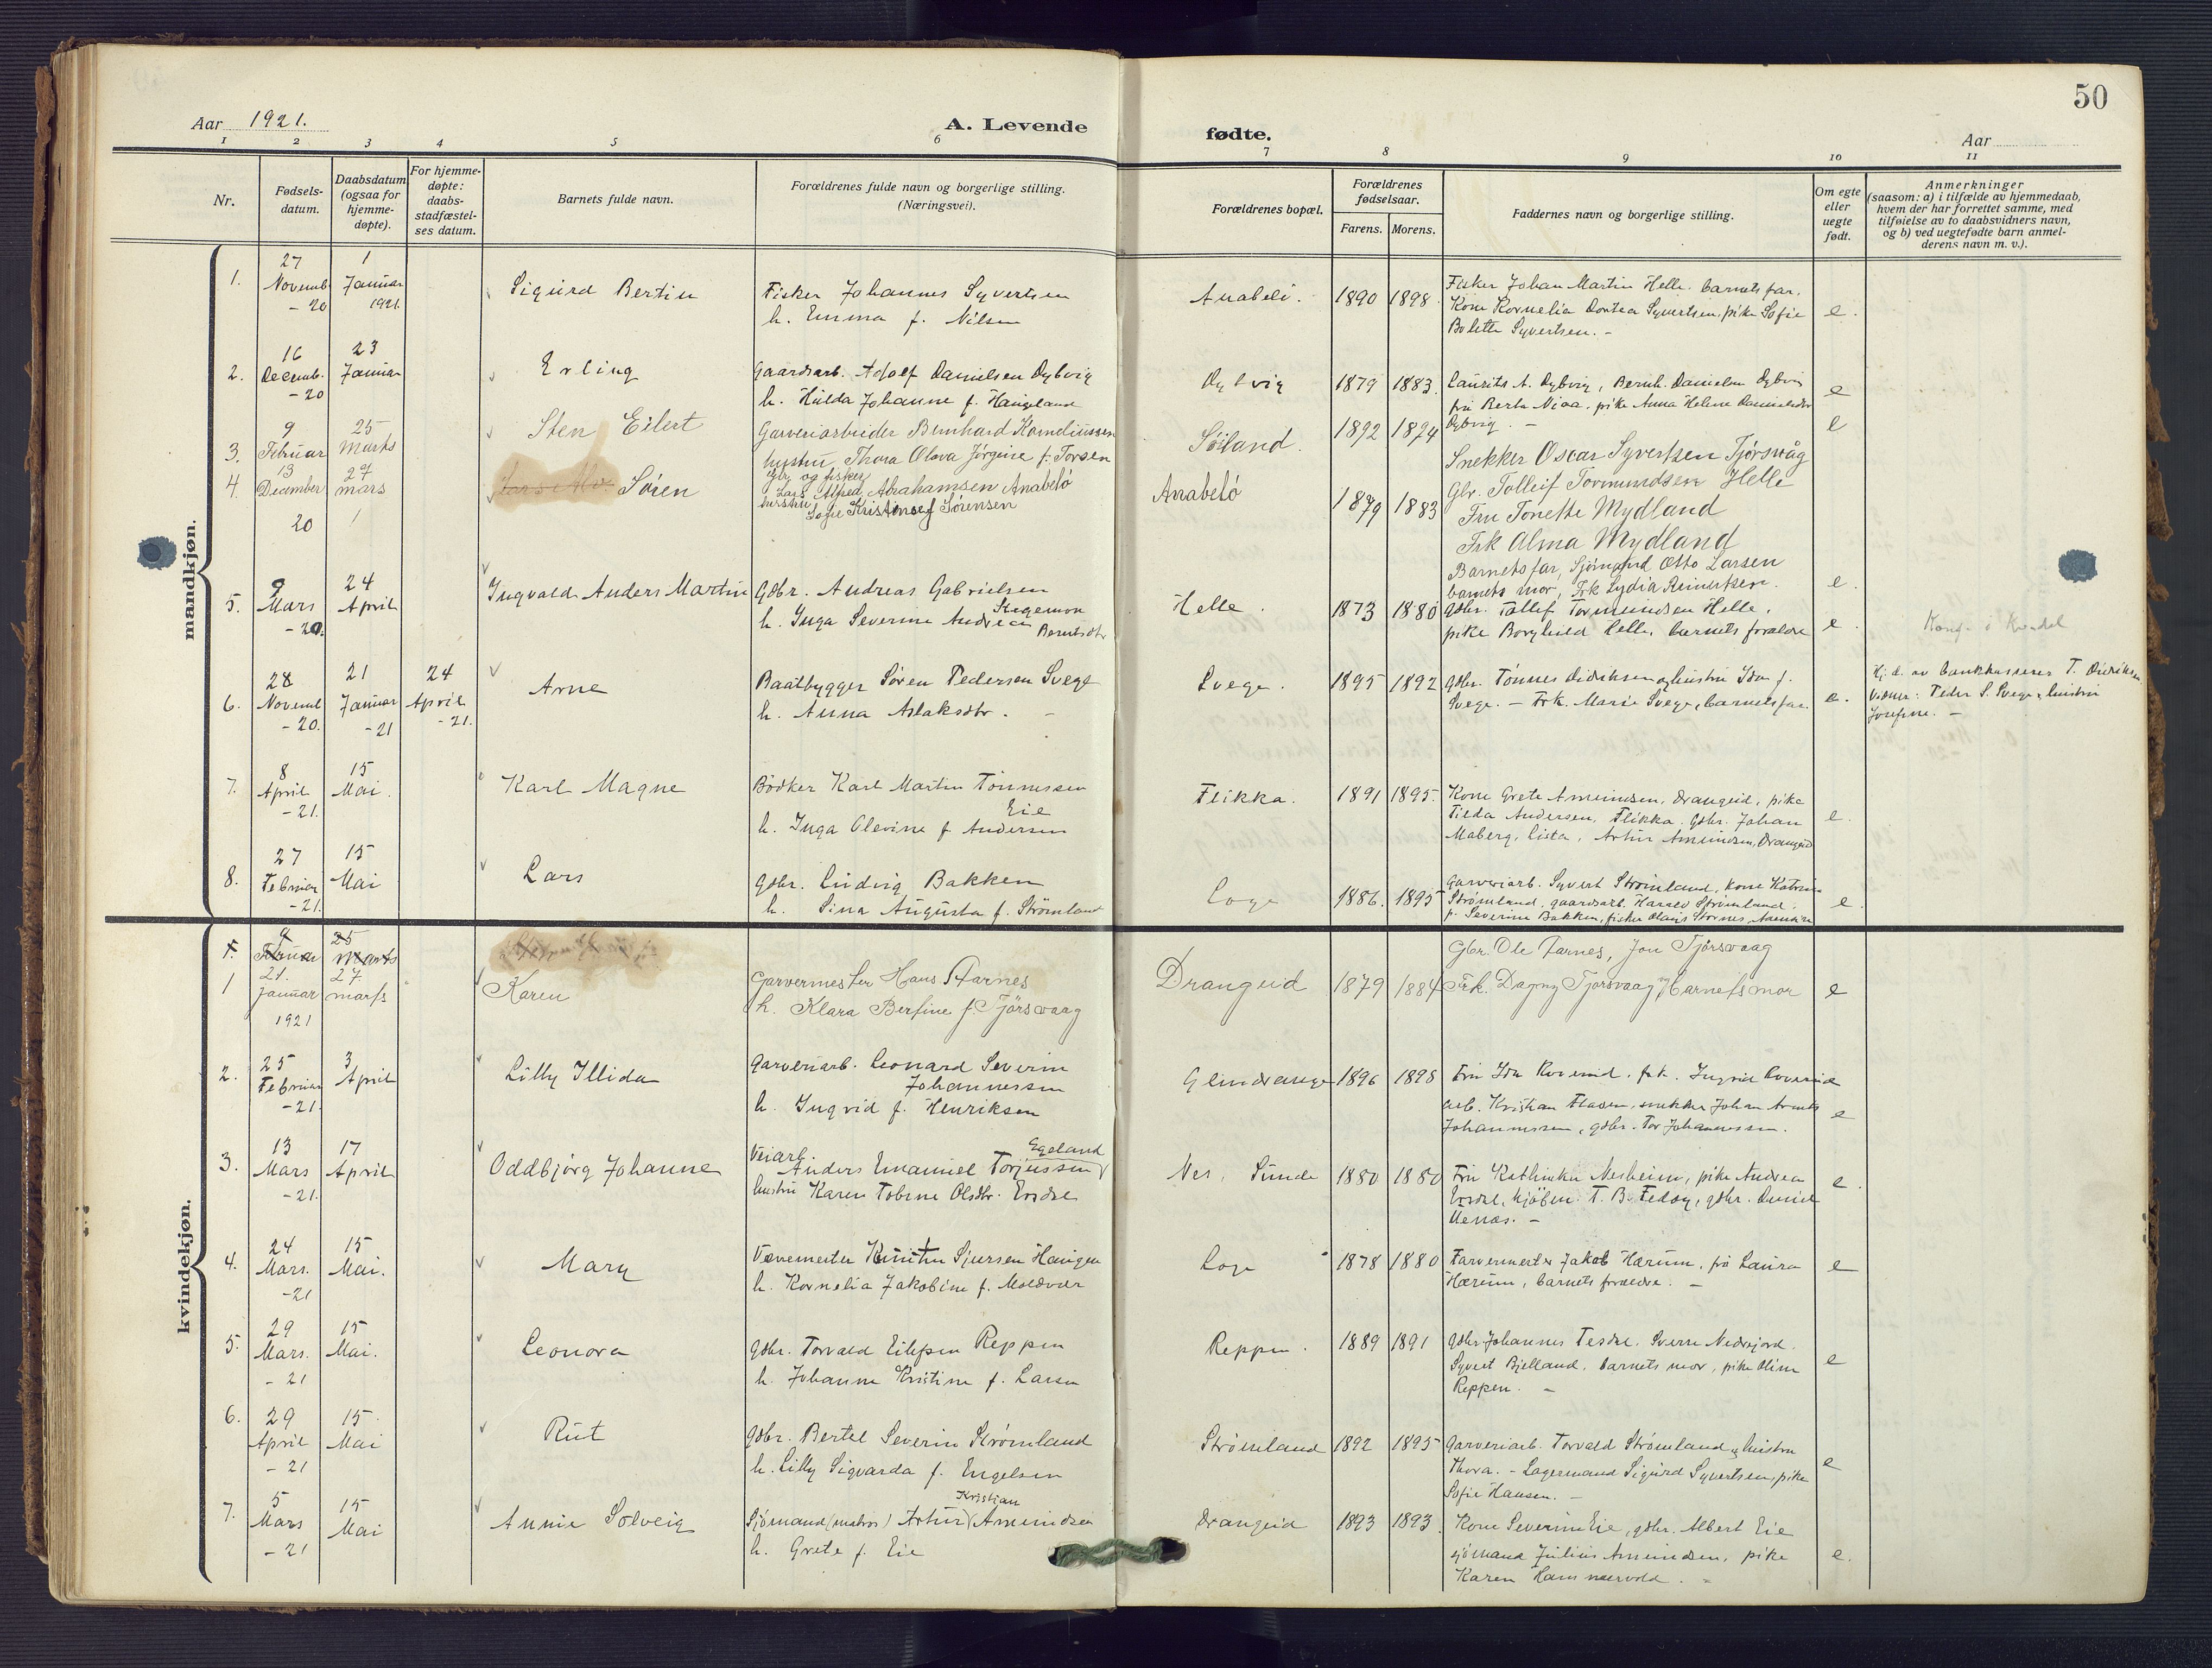 50
Aar 1921.
A. Levende
fødte.
Aar
1 2 3 4 5 6 7 8 9 10 11
Nr.
Fødsels-
datum.
Daabsdatum
(ogsaa for
hjemme-
døpte).
For hjemme-
døpte:
daabs-
stadfæstel-
ses datum.
Barnets fulde navn.
Forældrenes fulde navn og borgerlige stilling.
(Næringsvei).
Forældrenes bopæl.
Forældrenes
fødselsaar.
Farens. Morens.
Faddernes navn og borgerlige stilling.
Om egte
eller
uegte
født.
Anmerkninger
(saasom: a) i tilfælde av hjemmedaab,
hvem der har forrettet samme, med
tilføielse av to daabsvidners navn,
og b) ved uegtefødte barn anmel-
derens navn m. v.).
mandkjøn.
1.
27
Novemb
- 20
1
Januar
1921
Sigurd Bertin
Fisker Johannes Syvertsen
h. Emma f. Nilsen
Anabelö.
1890 1898
Fisker Johan Martin Helle. barnets far.
Kone Kornelia Dortea Syvertsen, pike Sofie
Bolette Syvertsen. -
e.
2.
16
Decemb.
- 20
23
Januar
Erling
Gaardsarb. Adolf Danielsen Dybvig
h. Hulda Johanne f. Haugeland
Dybvig
1879 1883
Laurits A. Dybvig, Bernh. Danielsen Dybvig
fru Berta Niaa. pike Anna Helene Danielsdtr
Dybvig. -
e
3.
9
Februar
25
Marts
Sten Eilert
Garveriarbeider Bernhard Korneliussen
hustru Thora Olava Jørgine f. Torsen
Söiland.
1892 1894
Snekker Oscar Syvertsen Tjörsvåg
Gbr. Tolleif Tormundsen Helle
Fru Tonette Mydland
Frk Alma Mydland
e
4.
13
December
20
27
mars
Søren
Gbr og fisker
Lars Alfred Abrahamsen Anabelö
hustru Sofie Kristine f Sørensen
Anabelö
1879 1883
Barnets far, Sjömand Otto Larsen
barnets mor, Frk Lydia Reinertsen.
e.
5.
9
Mars
- 20.
24
April
Ingvald Anders Martin
Gdbr. Andreas Gabrielsen
h. Inga Severine Andrea Berntsdtr
Helle.
1873 1880
gdbr. Tollef Tormundsen Helle.
pike Borghild Helle, barnets forældre
e.
6.
28
Novemb
- 20.
21
Januar
- 21
24
April
- 21.
Arne
Baatbygger Sören Pedersen Svege
h. Anna Aslaksdtr. -
Svege.
1895 1892
gdbr. Tönnes Didriksen og hustru Ida f.
Svege. - Frk. Marie Svege, barnets far.
e.
Hj.d. av bankkasserer T. Didriksen
Vidner: Peder S. Svege og hustru
Josefine. -
7.
8
April
- 21.
15
Mai.
Karl Magne
Bödker Karl Martin Tönnessen
Eie
h. Inga Olevine f. Andersen
Flikka.
1891 1895.
Kone Grete Amundsen, Drangeid, pike
Tilda Andersen, Flikka. gdbr. Johan
Maberg, Lista, Artur Amundsen, Drangeid
e.
8.
27
Februar
- 21.
15
Mai
Lars
gdbr. Ludvig Bakken
h. Sina Augusta f. Strömland
Loge
1886. 1895
Garveriarb. Syvert Strömland, kone Katrine
Strömland, gaardsarb. Harald Strömland.
p. Severine Bakken, fisker Olaus Stornes
e
kvindekjøn.
1.
9
Februar
25
Marts
1
21.
januar
1921
27.
marts
Karen
Garvermester Hans Aarnes
h. Klara Bertine f. Tjörsvaag
Drangeid
1879 1884
Gbr. Ole Aarnes, Jon Tjörsvaag
Frk. Dagny Tjorsvaag, og Barnets mor
e
2.
25
Februar
- 21.
3
April
Lilly Illida
Garveriarb. Leonard Severin
Johannessen
h. Ingrid f. Henriksen
Glendrange
1896 1898
Fru Ida Roremid. frk. Ingrid
arb. Kristian snekker Johan
Johannessen, gdbr. Tor Johannessen.
e
3.
13
Mars
- 21.
17
April
Oddbjörg Johanne
Veiarb. Egeland
Anders Emanuel Torjussen
hustru Karen Tobine Olsdtr. Ersdal
Nes, Sunde
1880 1880
Fru Kathinka Nesheim, pike Andrea
Ersdal, kjöbm. T. B. Fedog, gdbr. Daniel
Uenæs. -
e.
4.
24
Mars.
- 21
15
Mai.
Mary
Sjursen Haugen
h. Kornelia Jakobine f. Moldvær
Loge
1878 1880
Farvermester Jakob Hærum, frú Laura
Hærum, barnets forældre. -
e
5.
29
Mars.
- 21
15
Mai.
Leonora
gdbr. Torvald Eilefsen Reppen
h. Johanne Kristine f. Larsen
Reppen.
1889 1891
gdbr Johannes Tesdal. Sverre Nedrejord.
Syvert Bjelland. barnets mor, pike Oline
Reppen. -
e
6.
29
April
- 21
15
Mai
Rut
gdbr. Bertel Severin Strömland
h. Lilly Sigvarda f. Engelsen
Strömland
1892 1895
garveriarb. Torvald Strömland og hustru
Thora. - Lagermand Sigurd Syvertsen, pike
Sofie Hansen. -
e
7.
5
Mars
- 21
15
Mai
Annie Solveig
Kristian
Sjömand (matros) Artur Amundsen
h. Grete f. Eie
Drangeid
1893 1893.
Kone Severine Eie, gdbr. Albert Eie
sjömand Julius Amundsen, pike
Karen Hamnærvold. -
e.